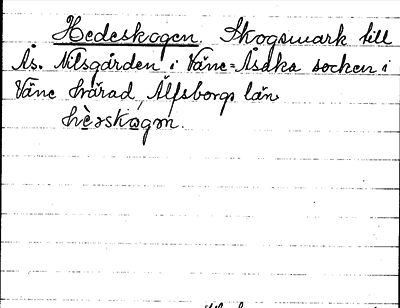 Hedeskogen. Skogsmark till
Ås. Nilsgården i Väne-Åsaka socken i
Väne härad, Älfsborgs län